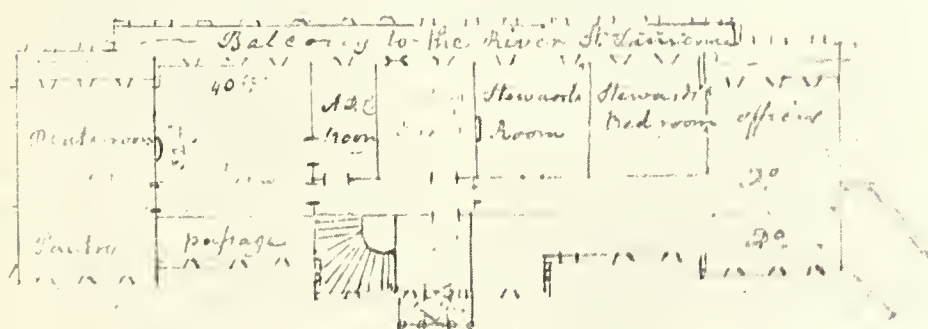 Balcony to the River St. Lawrence
40
A.D.C
room
Stewards
Room
Stewards
bedroom
offices
room
Do
Do
Pantry
paſsage